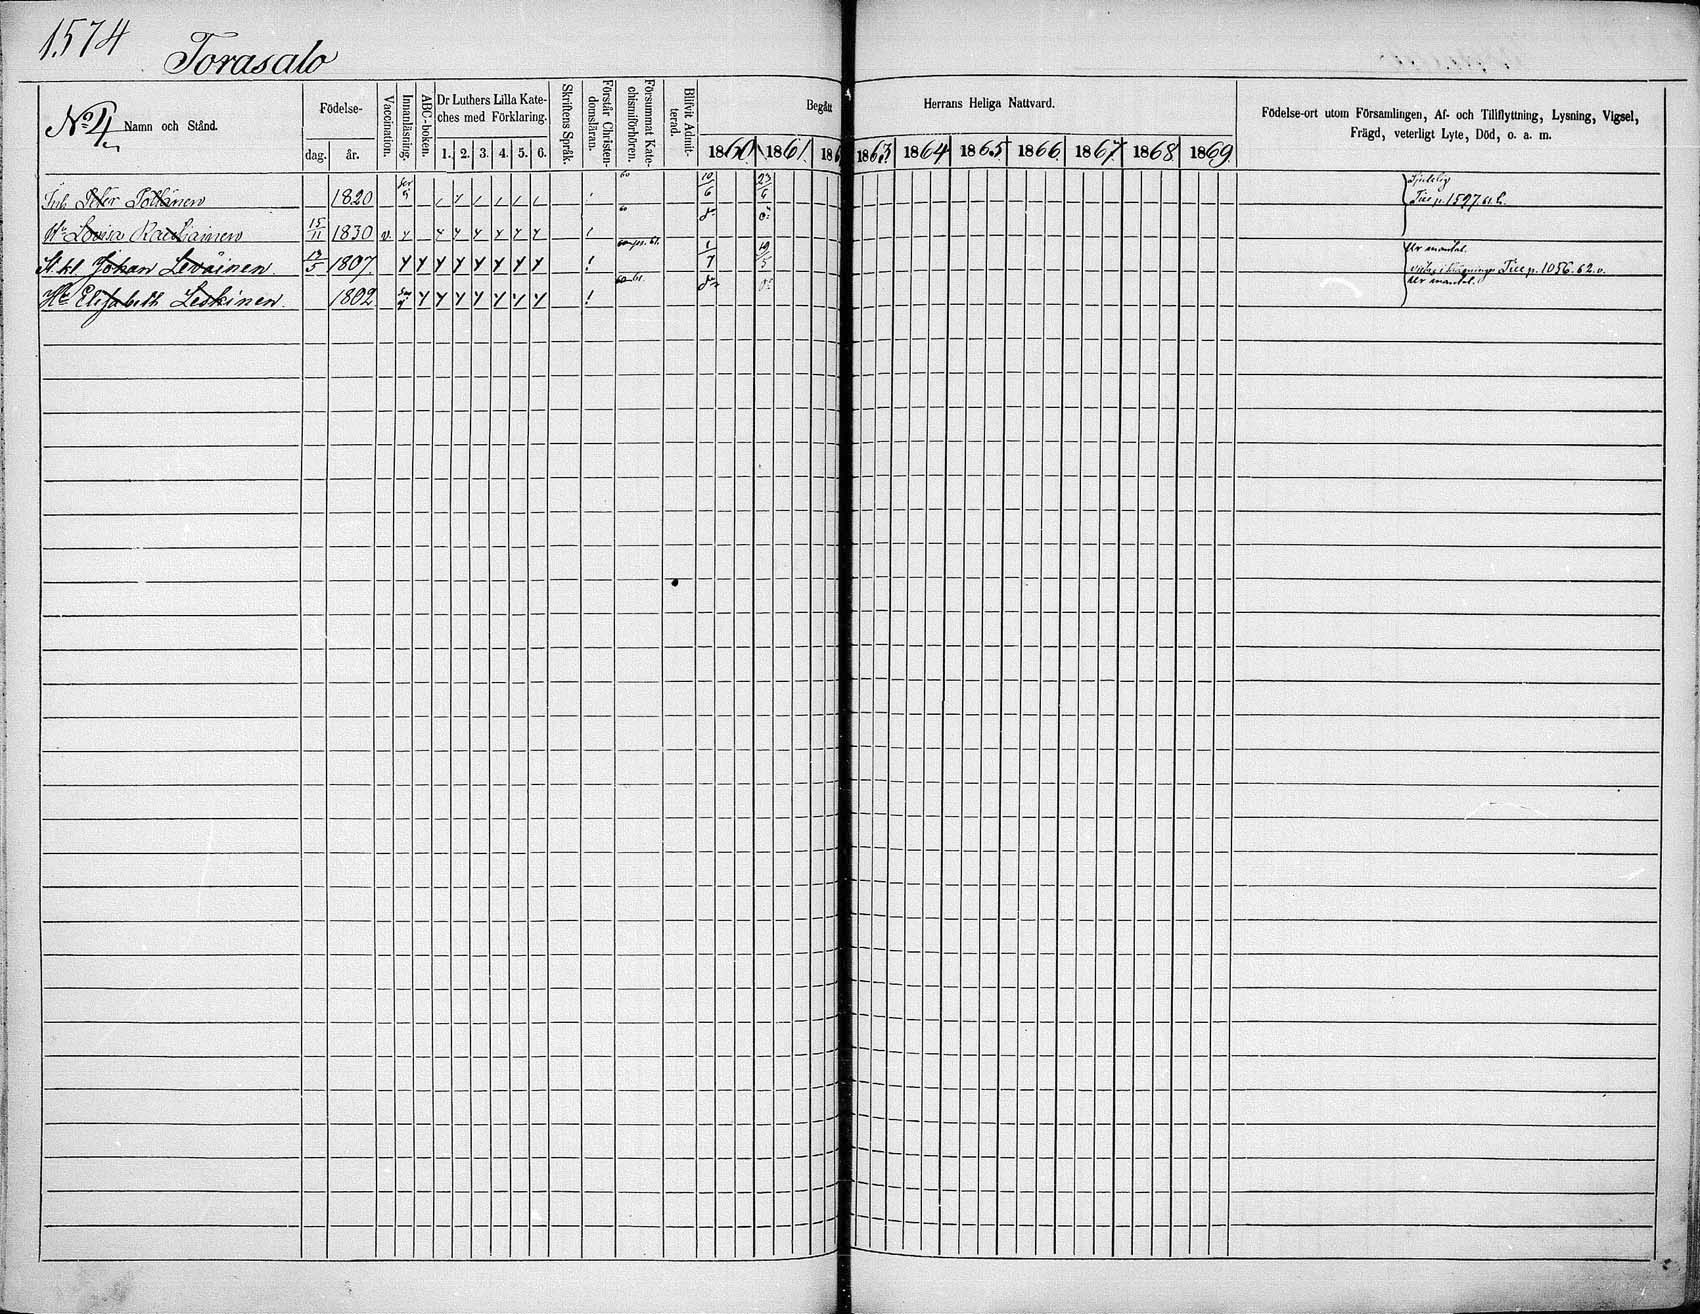 1574
Torasalo
No 4
Namn och Stånd.
Födelse-
dag. år.
Vaccination.
Innanläsning.
ABC-boken.
Dr Luthers Lilla Kate-
ches med Förklaring.
1. 2. 3. 4. 5. 6.
Skriftens Språk.
Förstår Christen-
domsläran.
Försummat Kate-
chismiförhören.
Blifvit Admit-
terad.
Begått Herrans Heliga Nattvard.
1860 1861 186 1863 1864 1865 1866 1867 1868 1869
Födelse-ort utom Församlingen, Af- och Tillflyttning, Lysning, Vigsel,
Frägd, veterligt Lyte, Död, o. a. m.
Inh Peter 1820 60 10/6 23/6
p. 1597
Hu Lovisa 15/11 1830 v. 60
St. kl Johan Leväinen 13/5 1807 60 61. 1/7 19/5 Ur mantal.
p. 1056. 62.
Hu Elisabeth Leskinen. 1802 60 61. Ur mantal.